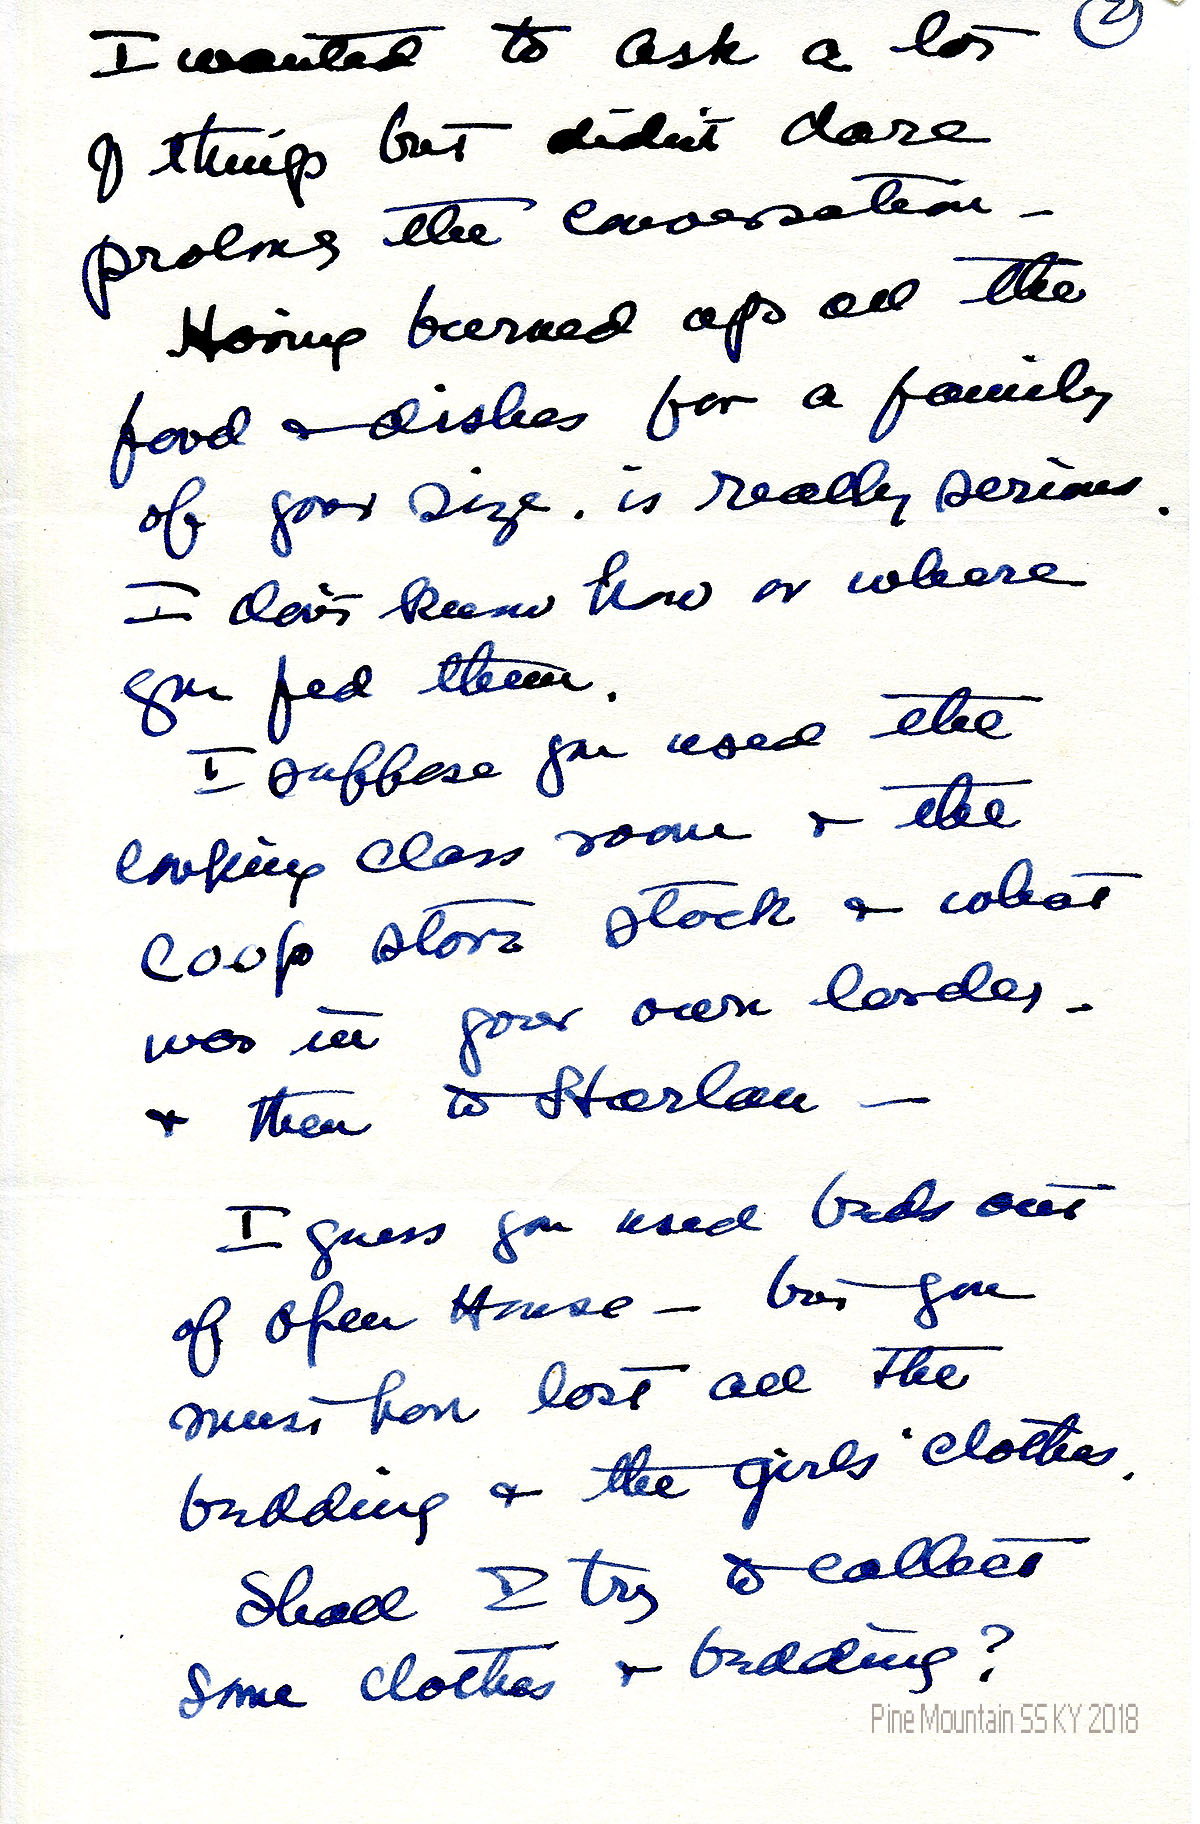 2
I wanted to ask a lot
of things but didn't dare
prolong the conversation -
Having burned up all the
food & dishes for a family
of your size. is really serious.
I don't know how or where
you fed them.
I suppose you used the
cooking class room & the
coop store stock & what
was in your own larder -
& then to Harlan —
I guess you used beds out
of Open House - but you
must have lost all the
bedding & the girls' clothes.
Shall I try to collect
some clothes & bedding?
Pine Mountain SS KY 2018